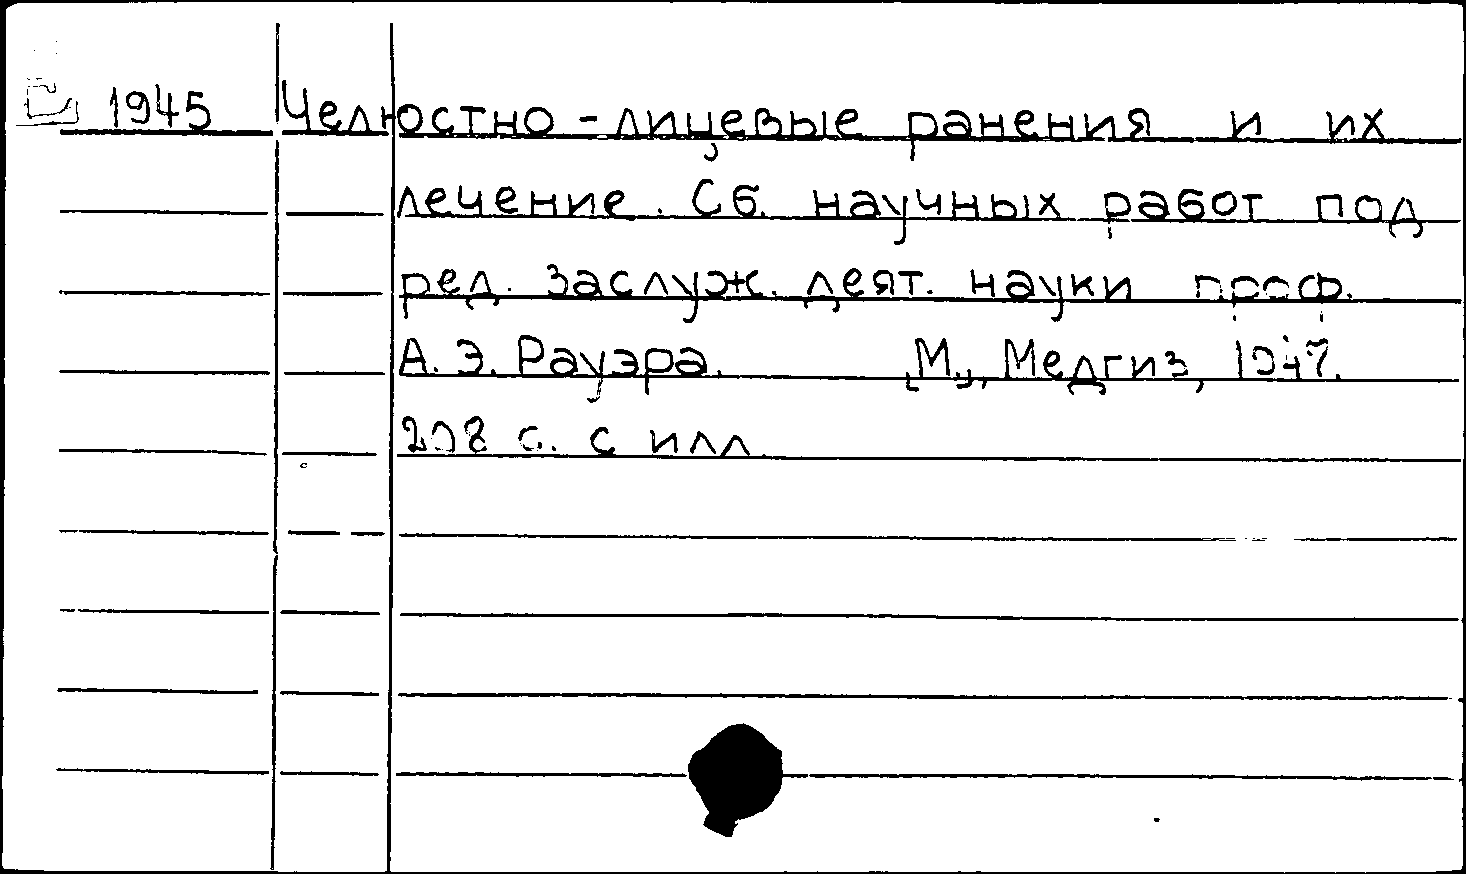 1945 Челюстно-лицевые ранения и их
лечение. Сб. научных работ под
ред. заслуж. деят. науки проф.
А. Э. Рауэра. М., Медгиз, 1947.
208 с. с илл.